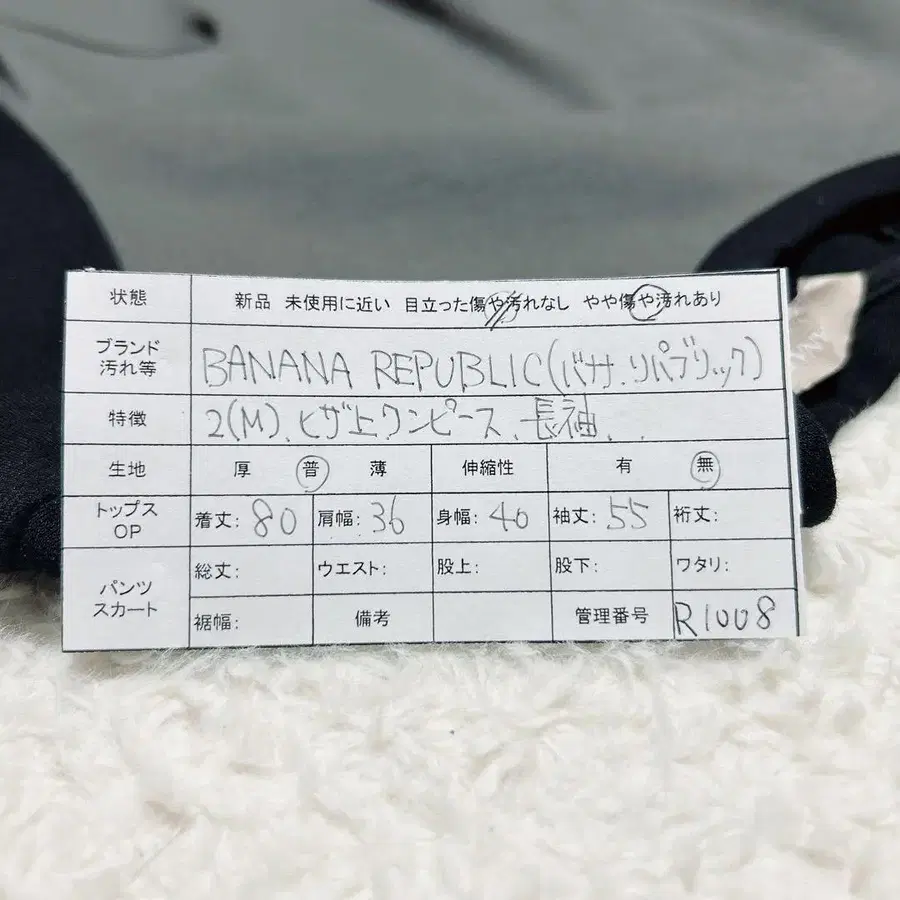 状態 新品 未使用に近い 目立った傷や汚れなし やや傷や汚れあり
ブランド
汚れ等 BANANA REPUBLIC(バナナ.リパブリック)
特徴 2(M)、ヒザ上ワンピース、長袖、.
生地 厚 普 薄 伸縮性 有 無
トップス
OP 着丈: 80 肩幅: 36 身幅: 40 袖丈: 55 裄丈:
パンツ
スカート 総丈: ウエスト: 股上: 股下: ワタリ:
裾幅: 備考 管理番号 R1008